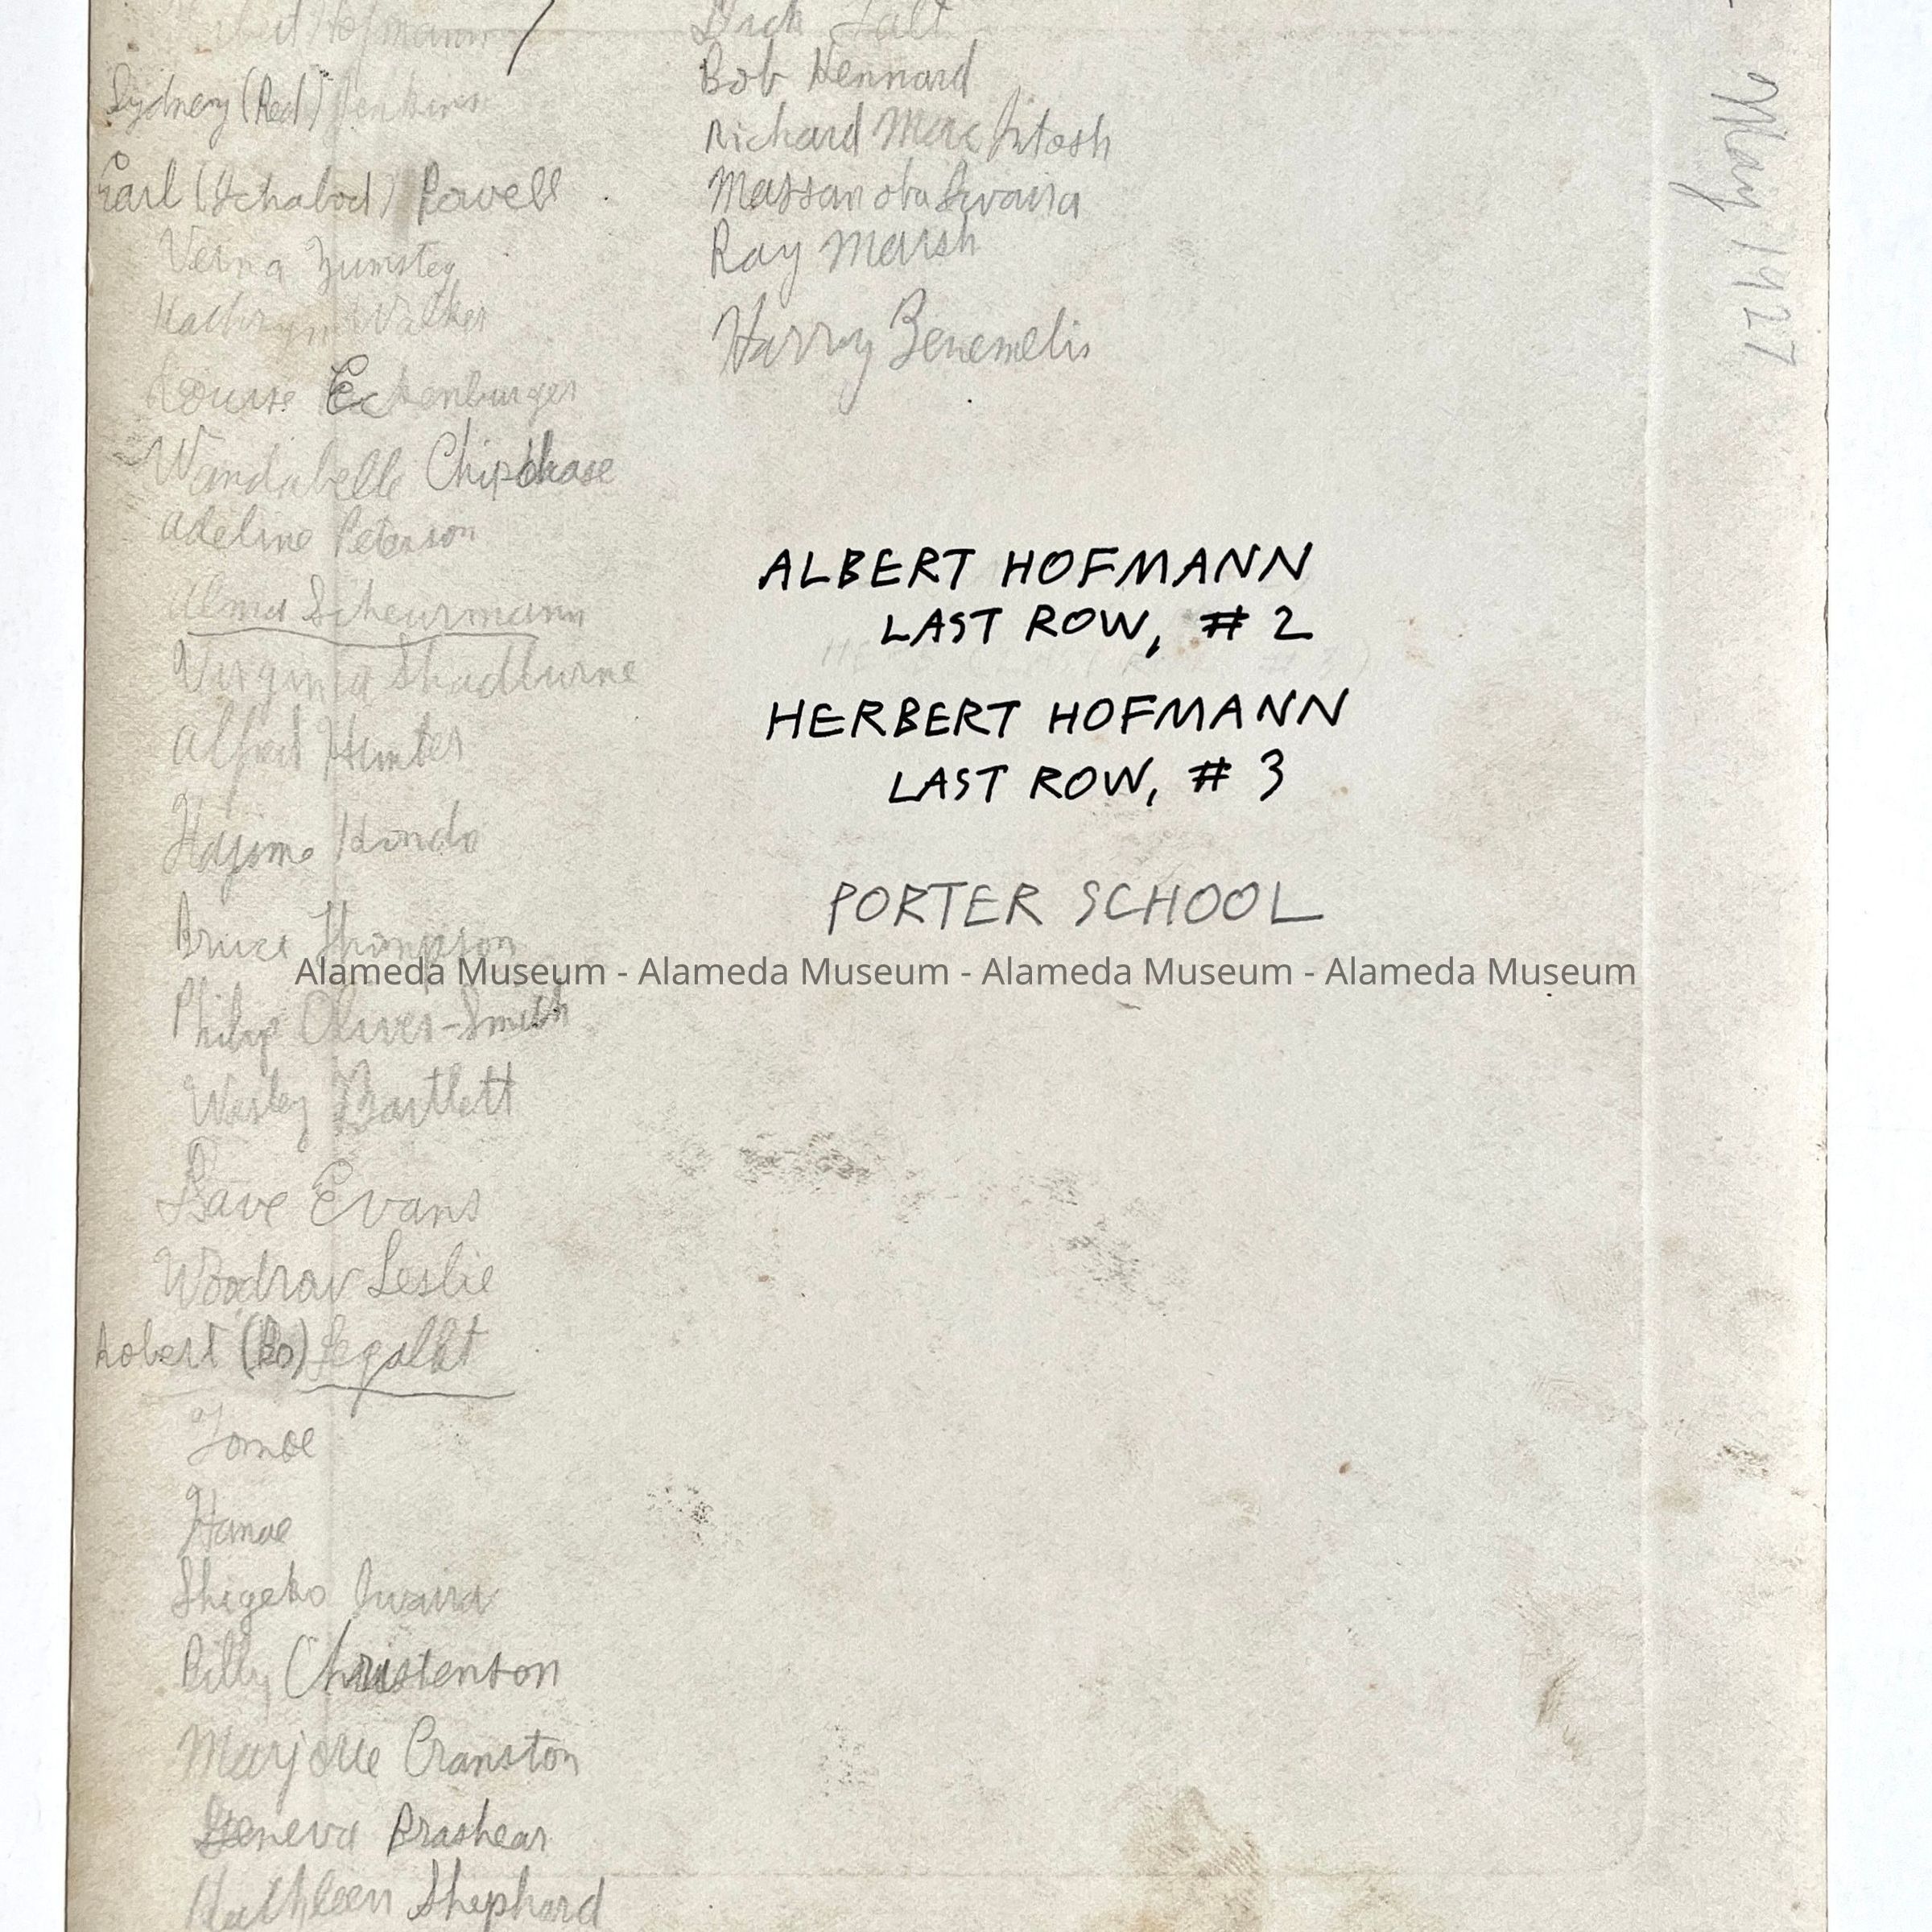 Hofmann
Sydney (Red) Jenkins
Earl (Ichabod) Powell
Verna Zumsteg
Kathryn Walker
Louise Eckenburger
Wandabelle Chipchase
Adeline Peterson
Alma Scheurmann
Virginia Shadburne
Alfred Hunter
Hajime Kondo
Bruce Thompson
Philip Oliver-Smith
Wesley Bartlett
Dave Evans
Woodrow Leslie
Robert (Bo)
Tomoe
Hanae
Shigeko Iwaira
Billy Christenson
Marjorie Cranston
Geneva Brashear
Kathleen Shephard
Dick
Bob Kennard
Richard MacIntosh
Ray Marsh
Harry Benemelis
ALBERT HOFMANN
LAST ROW, # 2
HERBERT HOFMANN
LAST ROW, # 3
PORTER SCHOOL
Alameda Museum - Alameda Museum - Alameda Museum - Alameda Museum
May 1927